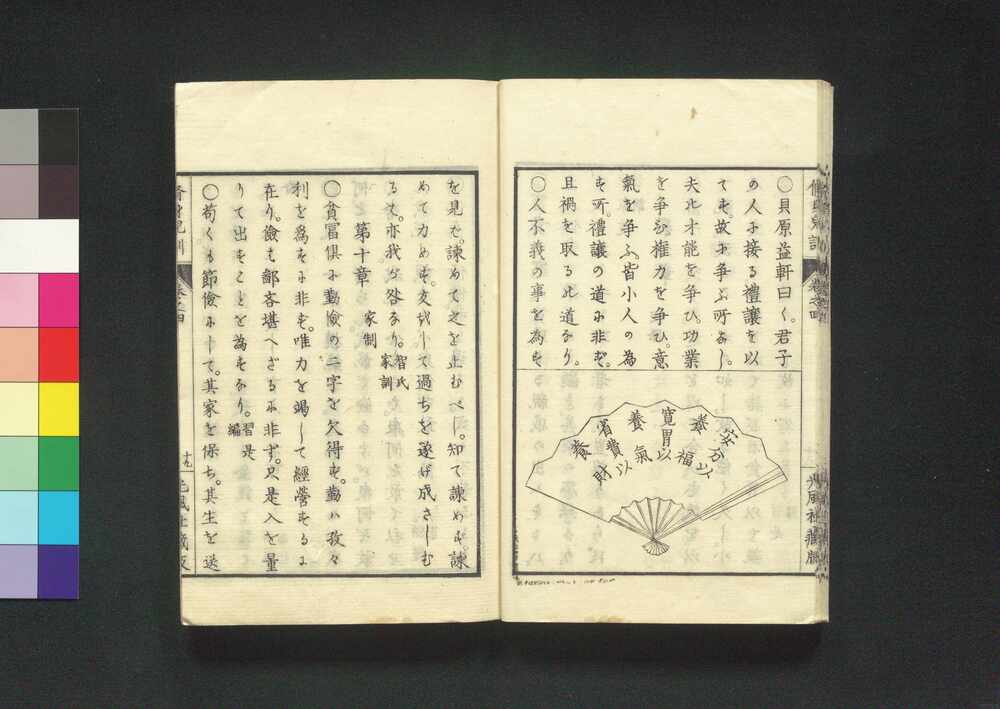 ○貝原益軒曰く。君子
の人に接る禮讓を以
てす。故に争ふ所なし。
夫れ才能を争ひ。功業
を争ひ。權力を争ひ。意
氣を争ふ。皆小人の為
す所。禮讓の道に非ず。
且禍を取るの道なり。
○人不義の事を為す
安分以
養福
寛胃以
養氣
省費以
養財
を見て。諫めて之を止むべし。知て諫めず。諫
めて力めず。交伐して過ちを遂げ成さしむ
るは。亦我が咎なり。智氏家訓
第十章 家制
○貧富倶に勤儉の二字を欠得ず。勤ハ孜々
利を為すに非ず。唯力を竭して經營するに
在り。儉も鄙吝堪へざるに非ず。只是入を量
りて出すことを為すなり。習是編
○苟くも節儉にして。其家を保ち。其生を送
脩身児訓
卷之四
十九